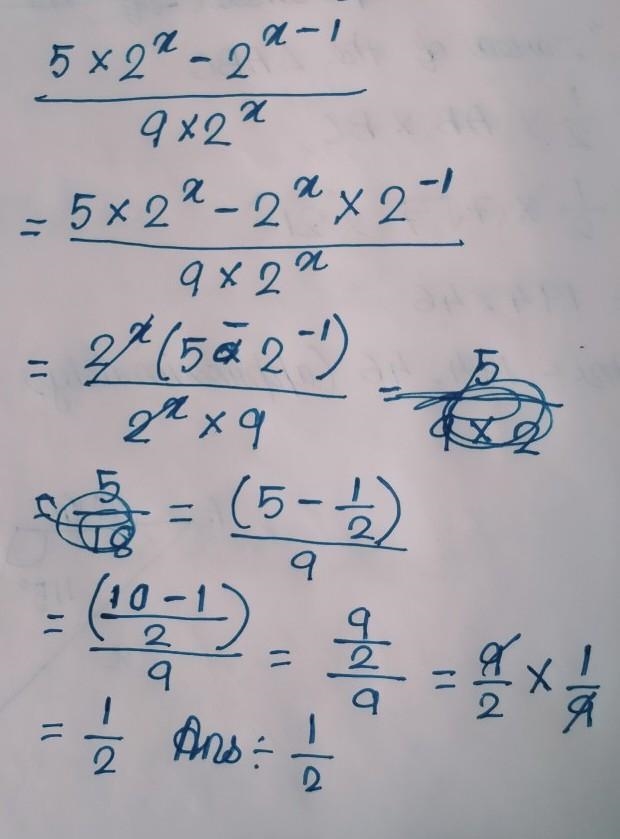 5 × 2^x − 2^(x−1)
9 × 2^x
= 5 × 2^x − 2^x × 2^−1
9 × 2^x
= 2^x (5 − 2^−1)
2^x × 9
= 5
9 × 2
= 5
18
= (5 − 1/2)
9
= (10 − 1
2)
9
= 9
2
9
= 9/2 × 1/9
= 1/2 Ans ÷ 1/2